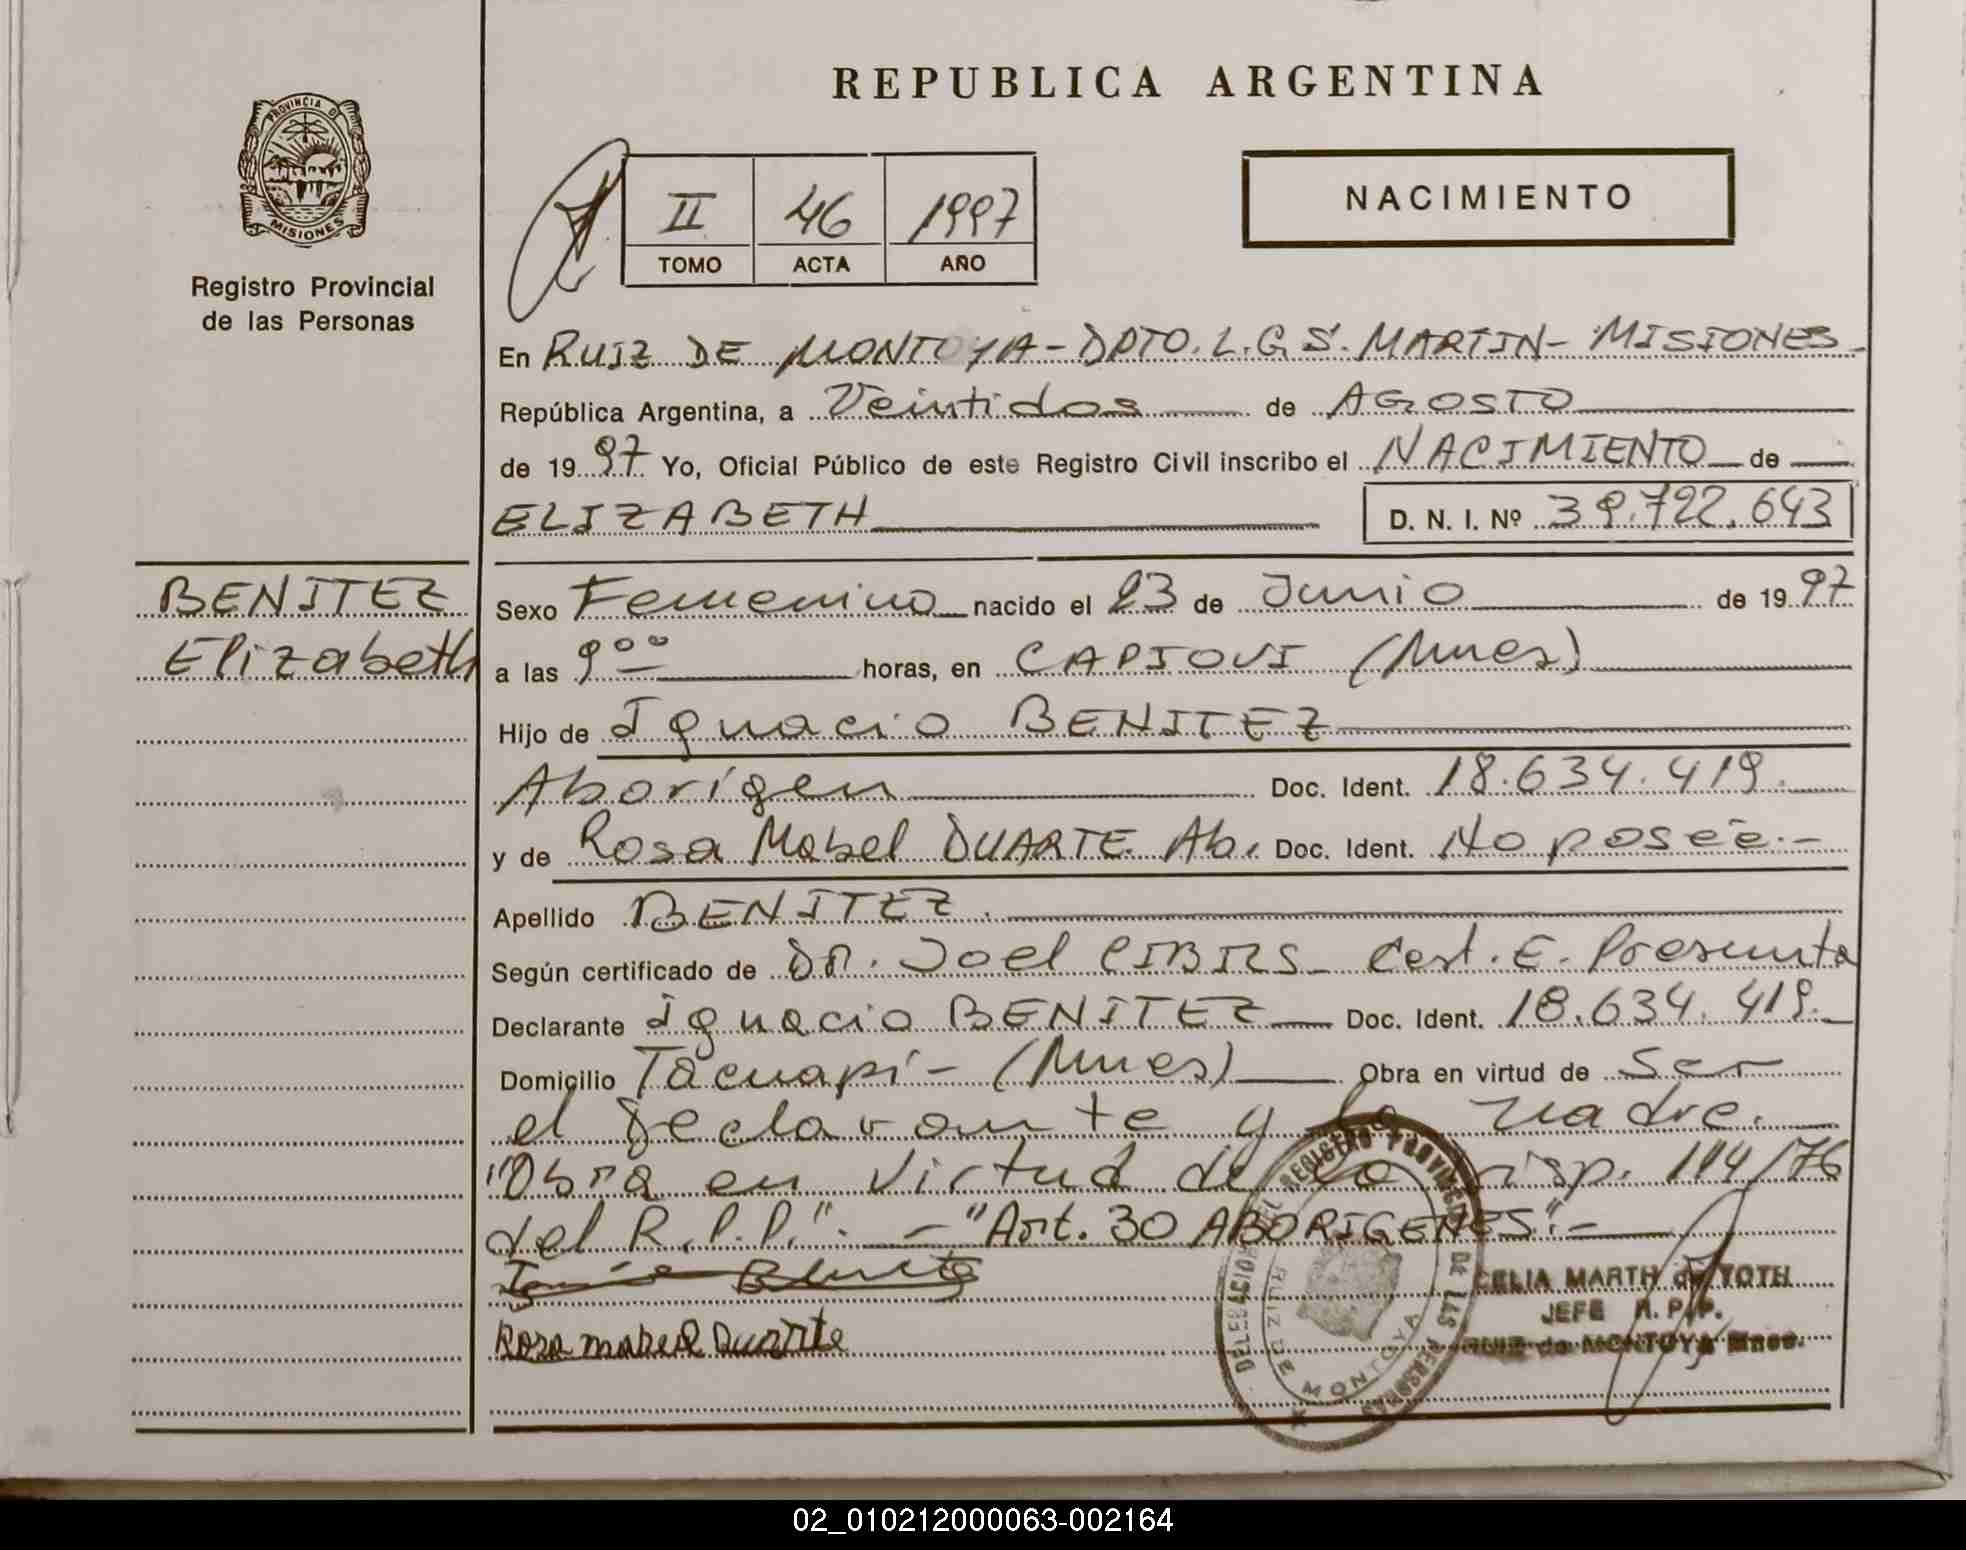 REPUBLICA ARGENTINA
PROVINCIA DE MISIONES
Registro Provincial
de las Personas
II 46 1997
TOMO ACTA AÑO
NACIMIENTO
En RUIZ DE MONTOYA - DPTO. L.G.S. MARTIN - MISIONES
República Argentina, a Veintidos de AGOSTO
de 1997 Yo, Oficial Público de este Registro Civil inscribo el NACIMIENTO de
ELIZABETH D. N. I. Nº 39.722.643
BENITEZ
Elizabeth
Sexo Femenino nacido el 23 de Junio de 1997
a las 9 ºº horas, en CAPIOVI (Mnes)
Hijo de Ignacio BENITEZ
Aborígen Doc. Ident. 18.634.419.
y de Rosa Mabel DUARTE Ab. Doc. Ident. No poseé.-
Apellido BENITEZ.
Según certificado de DR. Joel CIBILS - Cert. E. Presunta
Declarante Ignacio BENITEZ Doc. Ident. 18.634.419.-
Domicilio Tacuapí - (Mnes) Obra en virtud de ser
el declarante y la madre.
"Obra en virtud de la Disp. 114/76
del R.P.P.". - "Art. 30 ABORIGENES".-
Rosa mabel Duarte
DELEGACION DEL REGISTRO PROVINCIAL DE LAS PERSONAS
RUIZ DE MONTOYA
CELIA MARTH de TOTH
JEFE R.P.P.
RUIZ de MONTOYA Mnes.
02_010212000063-002164